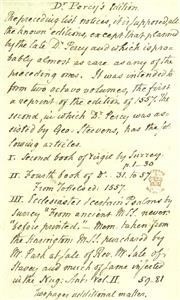 Dr. Percy's Edition.
The preceding list notices, it is supposed, all
the known editions, except that planned
by the late Dr. Percy and which is pro-
bably almost as rare as any of the
preceding ones. It was intended to
form two octavo volumes, the first
a reprint of the edition of 1557. The
second, in which Dr. Percy was as-
sisted by Geo. Steevens, has the fol-
lowing articles.
I. Second book of Virgil by Surrey.
p. 1. 30
II. Fourth book of Do. 31. to 57
From Tottel ed. 1557.
III. Ecclesiastes & certain Psalms by
Surrey "From ancient M.S. never
before printed." — Mem. taken from
the Harington M.S. purchased by
Mr. Park at sale of Geo. M. Sale of
Stacey and much of same inserted
in the Nug. Ant. Vol. II. 59. 81
Two pages additional matter.